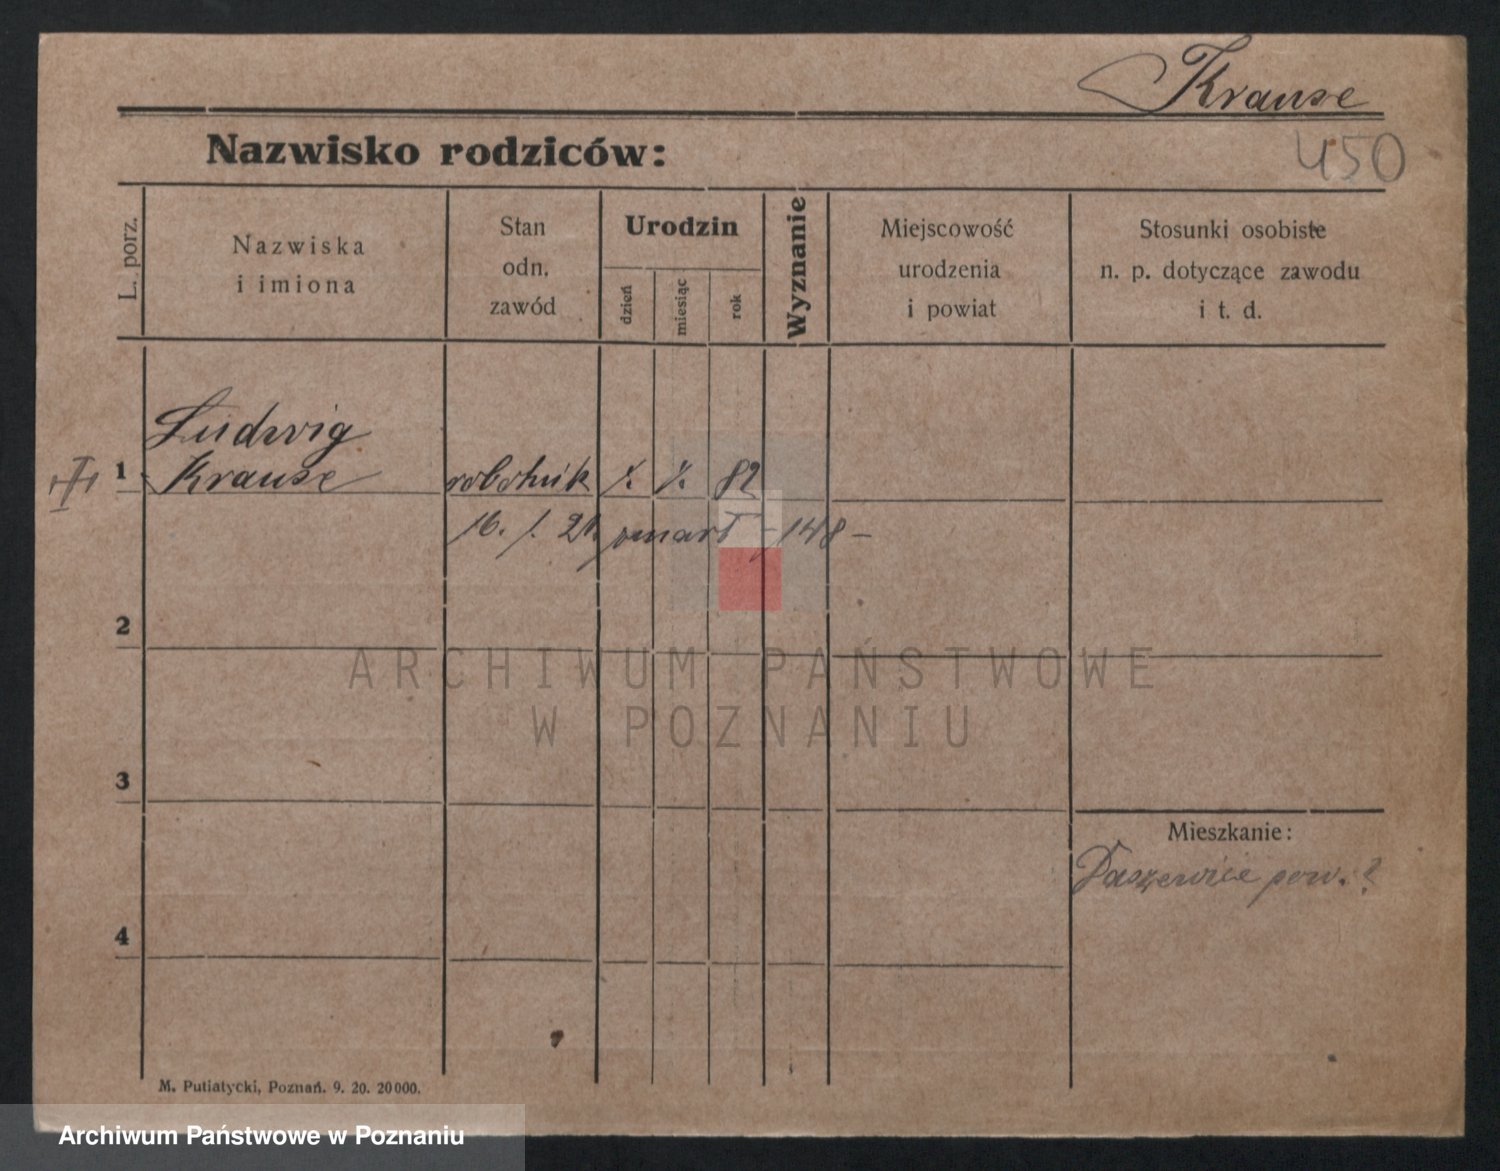 Krause
450
Nazwisko rodziców:
L. porz.
Nazwiska
i imiona
Stan
odn.
zawód
Urodzin
dzień
miesiąc
rok
Wyznanie
Miejscowość
urodzenia
i powiat
Stosunki osobiste
n. p. dotyczące zawodu
i t. d.
Ludwig
1 Krause robotnik 82
16. 1. 21. zmarł - 148 -
2
3
Mieszkanie:
pow. ?
4
M. Putiatycki, Poznań. 9. 20. 20000.
ARCHIWUM PAŃSTWOWE
W POZNANIU
Archiwum Państwowe w Poznaniu